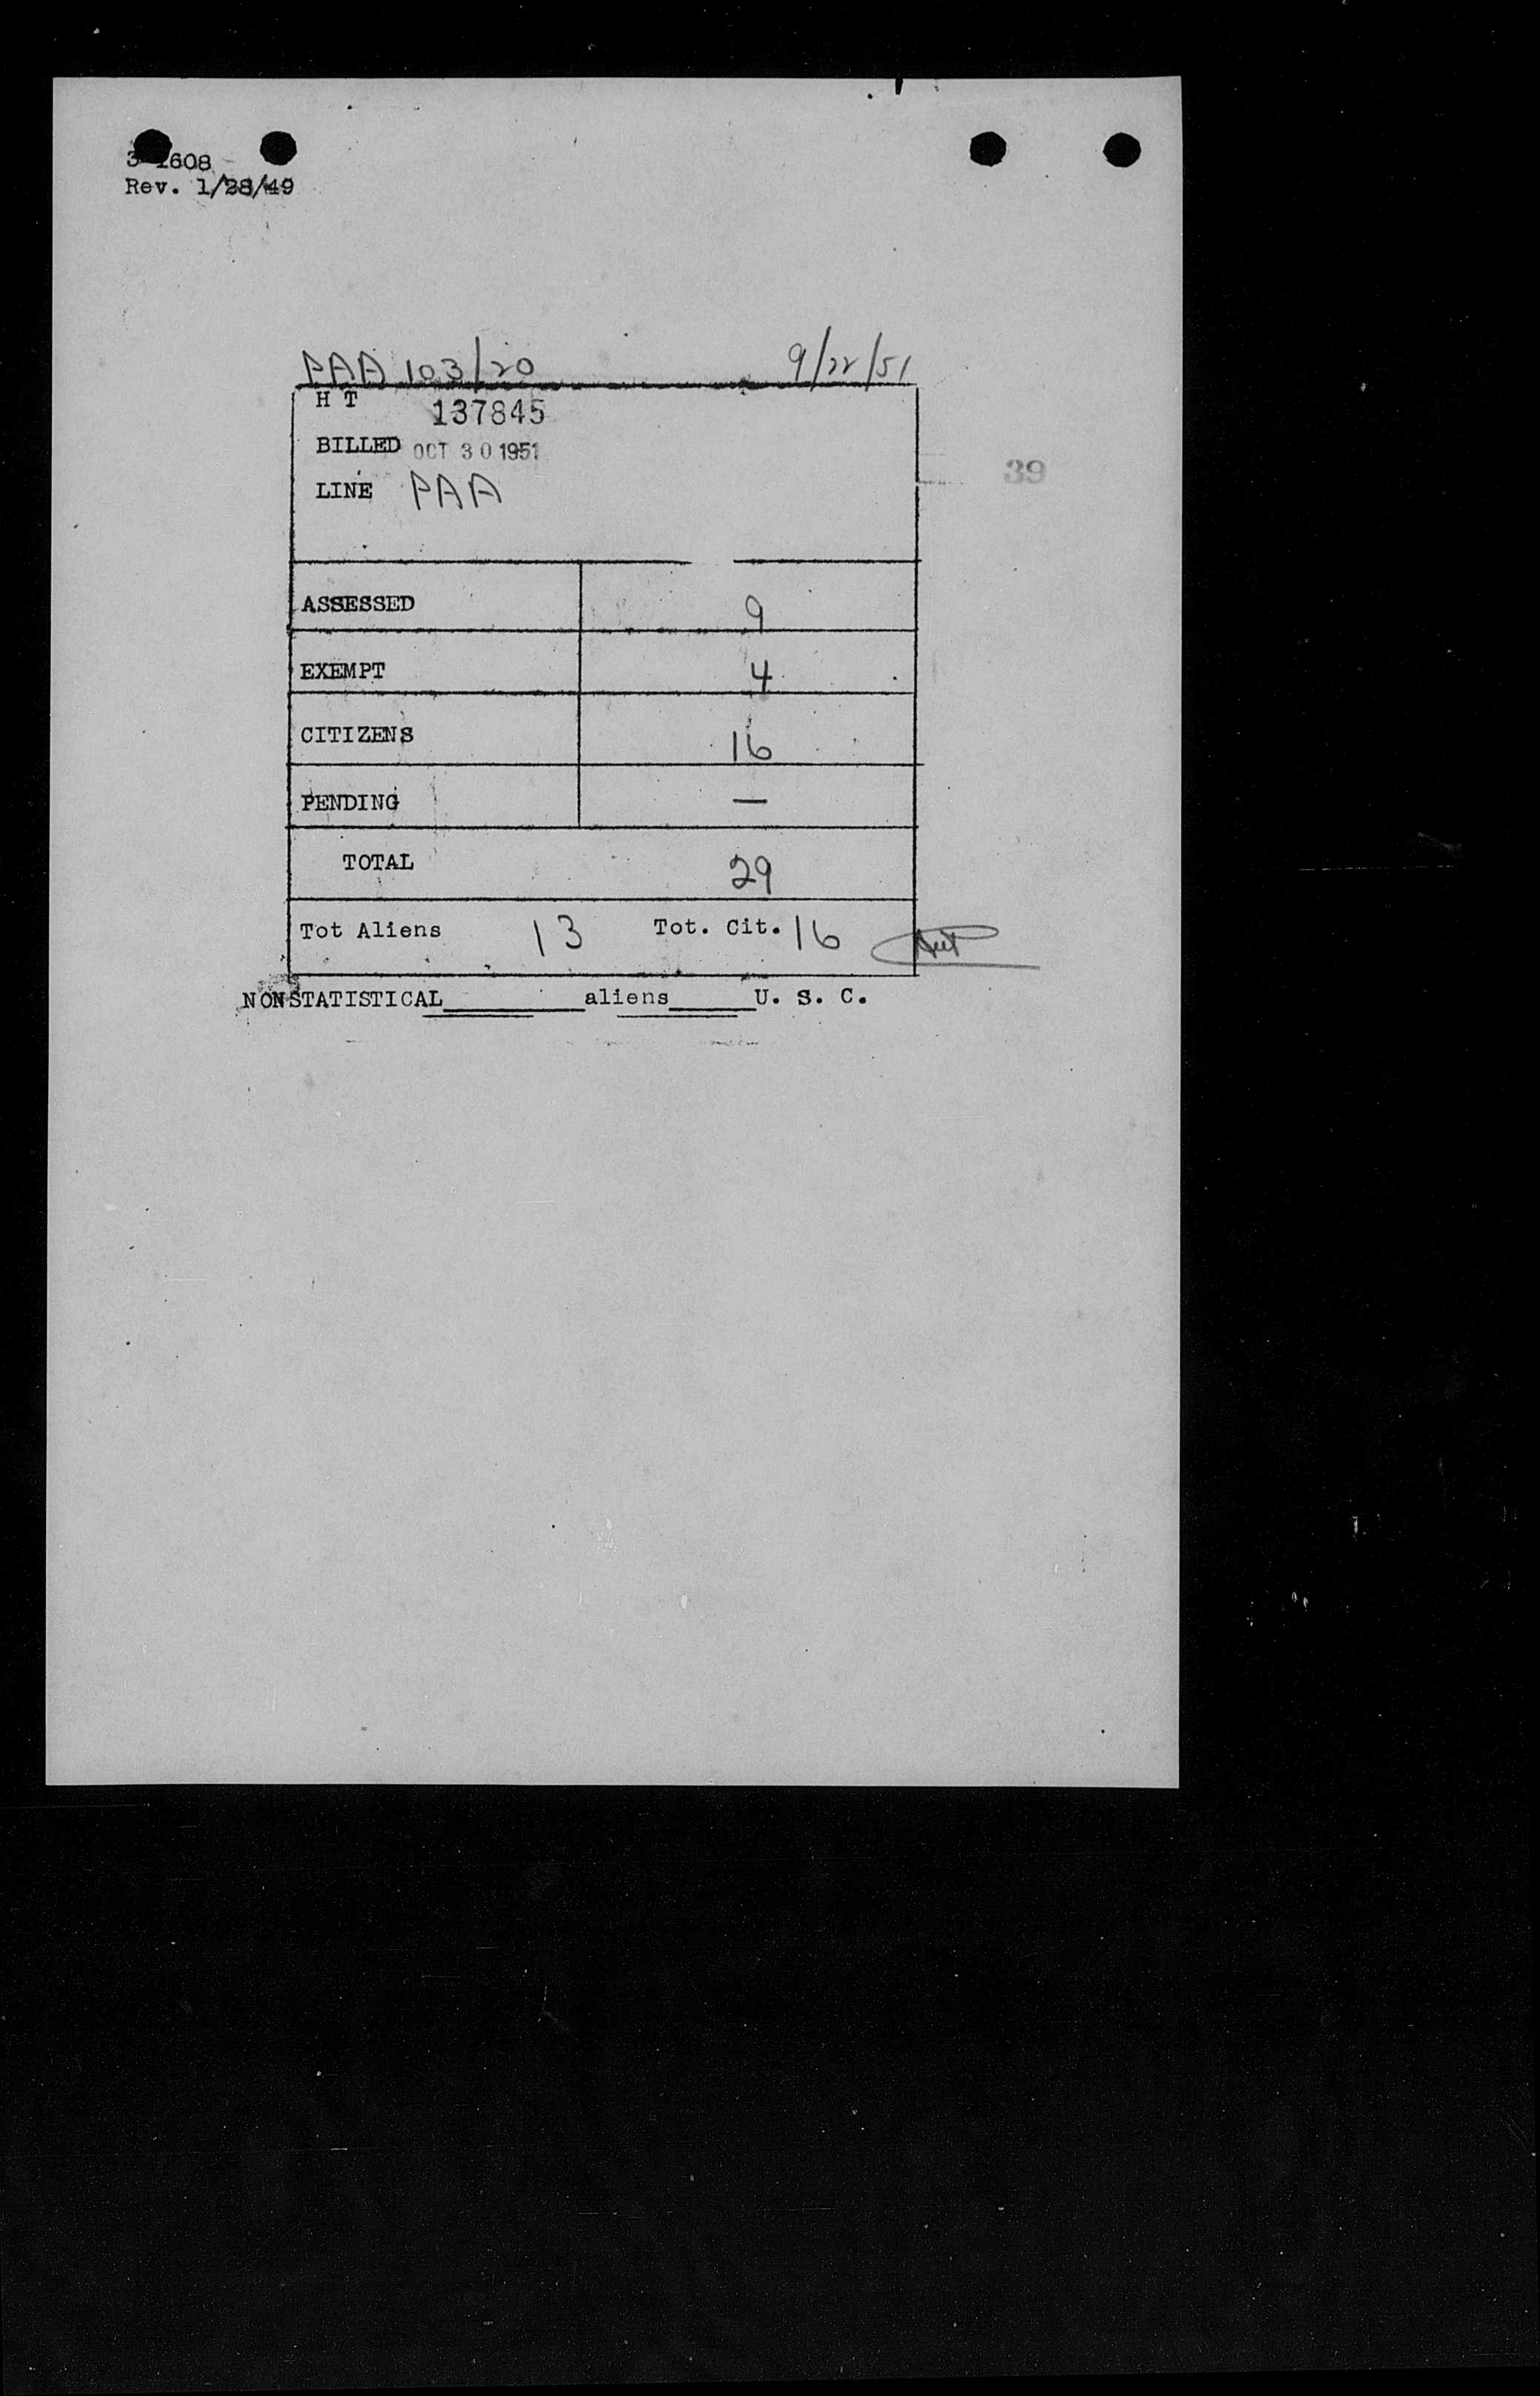 3-1608
Rev. 1/28/49
PAA 103/20 9/22/51
H T 137845
BILLED OCT 30 1951
39
LINE PAA
ASSESSED 9
EXEMPT 4
CITIZENS 16
PENDING —
TOTAL 29
Tot Aliens 13 Tot. Cit. 16
NONSTATISTICAL__________aliens______U. S. C.